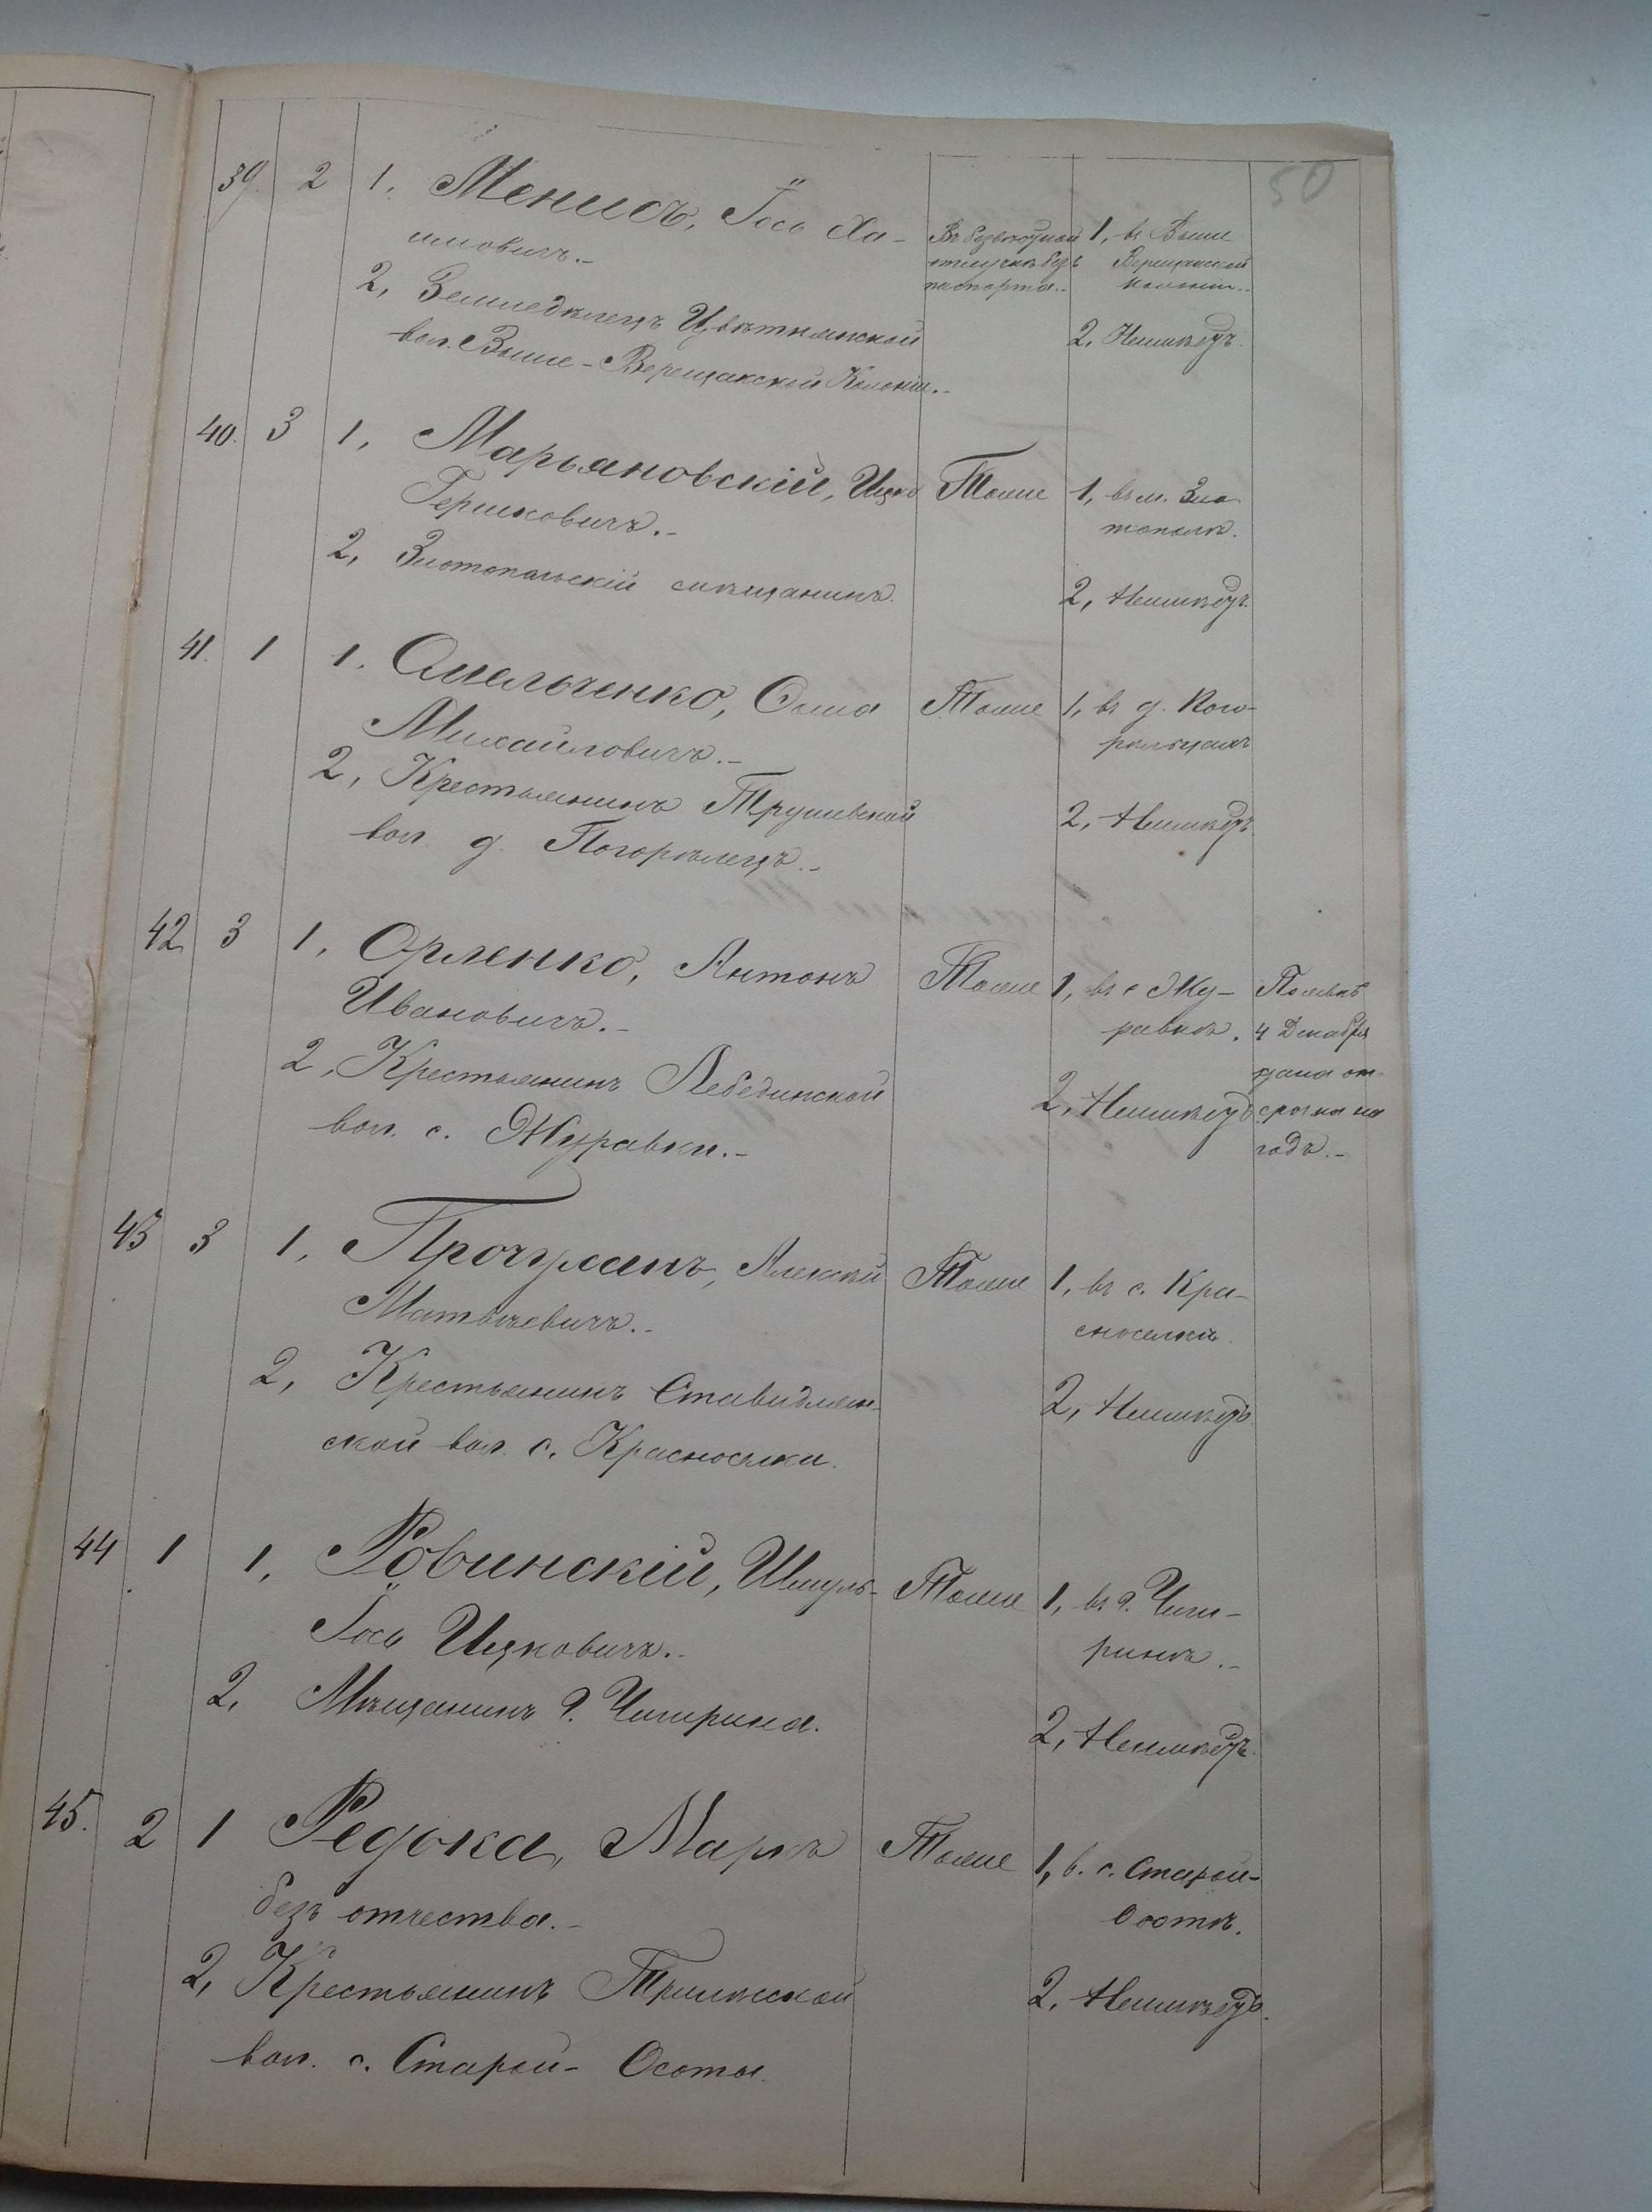 50
39. 2 1. Менисъ, Іось Ха-
имовичъ.-
2, Земледѣлецъ Цвѣтнянской
вол. Выше-Верещакской Колоніи.-
Въ безвѣстной
отлучкѣ безъ
паспорта.-
1, въ Выше
Верещакской
колоніи.-
2, Неимѣетъ.
40. 3 1, Марьяновскій, Ицко
Гершковичъ.-
2, Златопольскій мѣщанинъ.
Тоже
1, въ м. Зла
тополѣ.
2, Неимѣетъ.
41. 1 1. Омельченко, Фома
Михайловичъ.-
2, Крестьянинъ Трушевской
вол. д. Погорѣлецъ.-
Тоже
1, въ д. Пого-
рѣльцахъ
2, Неимѣетъ
42 3 1, Орленко, Антонъ
Ивановичъ.-
2, Крестьянинъ Лебединской
вол. с. Журавки.-
Тоже
1, въ с Жу-
равкѣ.
2, Неимѣетъ
4 Декабря
дана от-
срочка на
годъ.-
43 3 1, Алексѣй
Матвѣевичъ.-
2, Крестьянинъ Ставидлян-
ской вол. с. Красноселки.
Тоже
1, въ с. Кра-
сноселкѣ.
2, Неимѣетъ
44 1 1, Ровинскій, Шмуль-
Іось Ицковичъ.-
2, Мѣщанинъ г. Чигирина.
Тоже
1, въ г. Чиги-
ринѣ.-
2, Неимѣетъ.
45. 2 1 Редька, Марко
безъ отчества.-
2, Крестьянинъ Трилѣсской
вол. с. Старой-Осоты.
Тоже
1, в. с. Старой-
Осотѣ.
2, Неимѣетъ.